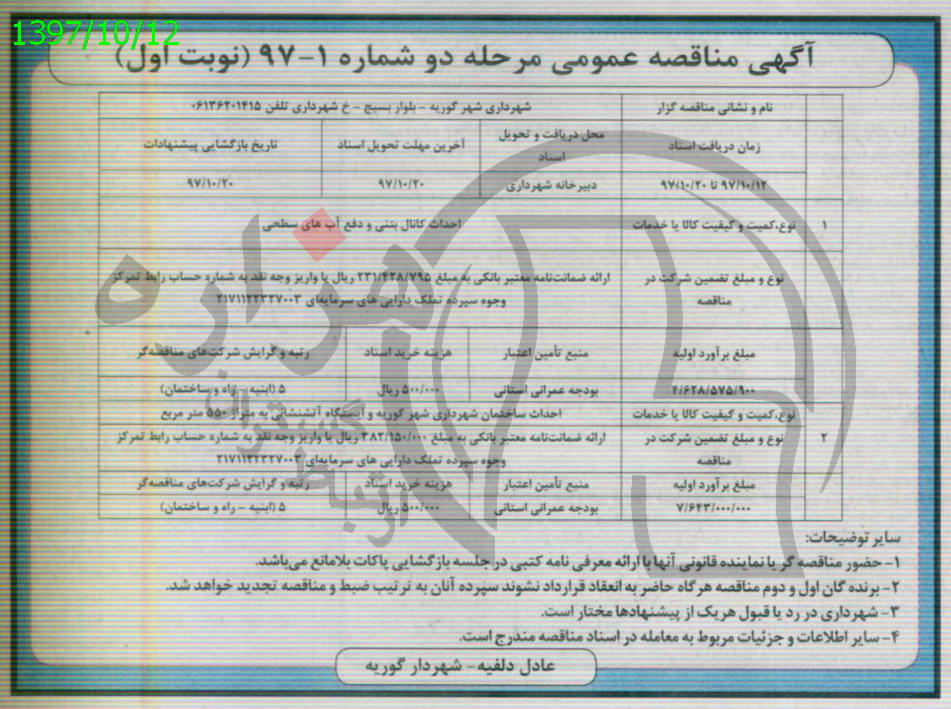 1397/10/12
آگهی مناقصه عمومی مرحله دو شماره ۱-۹۷ (نوبت اول)
نام و نشانی مناقصه گزار
شهرداری شهر گوریه - بلوار بسیج - خ شهرداری تلفن ۰۶۱۳۶۲۰۱۴۱۵
زمان دریافت اسناد
محل دریافت و تحویل اسناد
آخرین مهلت تحویل اسناد
تاریخ بازگشایی پیشنهادات
۹۷/۱۰/۱۲ تا ۹۷/۱۰/۲۰
دبیرخانه شهرداری
۹۷/۱۰/۲۰
۹۷/۱۰/۲۰
۱
نوع،کمیت و کیفیت کالا یا خدمات
احداث کانال بتنی و دفع آب های سطحی
نوع و مبلغ تضمین شرکت در مناقصه
ارائه ضمانت‌نامه معتبر بانکی به مبلغ ۲۳۱/۴۲۸/۷۹۵ ریال یا واریز وجه نقد به شماره حساب رابط تمرکز
وجوه سپرده تملک دارایی های سرمایه‌ای ۲۱۷۱۱۲۲۳۲۷۰۰۳
مبلغ برآورد اولیه
منبع تأمین اعتبار
هزینه خرید اسناد
رتبه و گرایش شرکت‌های مناقصه‌گر
۴/۶۲۸/۵۷۵/۹۰۰
بودجه عمرانی استانی
۵۰۰/۰۰۰ ریال
۵ (ابنیه - راه و ساختمان)
۲
نوع،کمیت و کیفیت کالا یا خدمات
احداث ساختمان شهرداری شهر گوریه و ایستگاه آتشنشانی به متراژ ۵۵۰ متر مربع
نوع و مبلغ تضمین شرکت در مناقصه
ارائه ضمانت‌نامه معتبر بانکی به مبلغ ۳۸۲/۱۵۰/۰۰۰ ریال یا واریز وجه نقد به شماره حساب رابط تمرکز
وجوه سپرده تملک دارایی های سرمایه‌ای ۲۱۷۱۱۲۲۳۲۷۰۰۳
مبلغ برآورد اولیه
منبع تأمین اعتبار
هزینه خرید اسناد
رتبه و گرایش شرکت‌های مناقصه‌گر
۷/۶۴۳/۰۰۰/۰۰۰
بودجه عمرانی استانی
۵۰۰/۰۰۰ ریال
۵ (ابنیه - راه و ساختمان)
سایر توضیحات:
۱- حضور مناقصه گر یا نماینده قانونی آنها با ارائه معرفی نامه کتبی در جلسه بازگشایی پاکات بلامانع می‌باشد.
۲- برنده گان اول و دوم مناقصه هرگاه حاضر به انعقاد قرارداد نشوند سپرده آنان به ترتیب ضبط و مناقصه تجدید خواهد شد.
۳- شهرداری در رد یا قبول هریک از پیشنهادها مختار است.
۴- سایر اطلاعات و جزئیات مربوط به معامله در اسناد مناقصه مندرج است.
عادل دلفیه- شهردار گوریه
هزاره